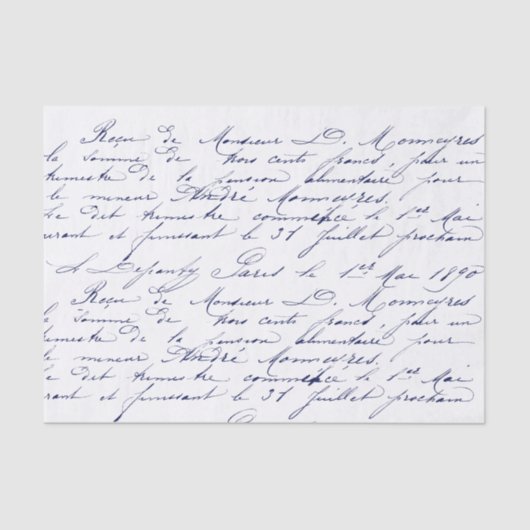 Reçu de Monsieur D. Monmeyres
la somme de trois cents francs, pour un
trimestre de la pension alimentaire pour
le mineur André Monmeyres.
Le dit trimestre commence le 1er Mai
urant et finissant le 31 Juillet prochain
Paris le 1er Mai 1890
Reçu de Monsieur D. Monmeyres
la somme de trois cents francs, pour un
trimestre de la pension alimentaire pour
le mineur André Monmeyres.
Le dit trimestre commence le 1er Mai
urant et finissant le 31 Juillet prochain